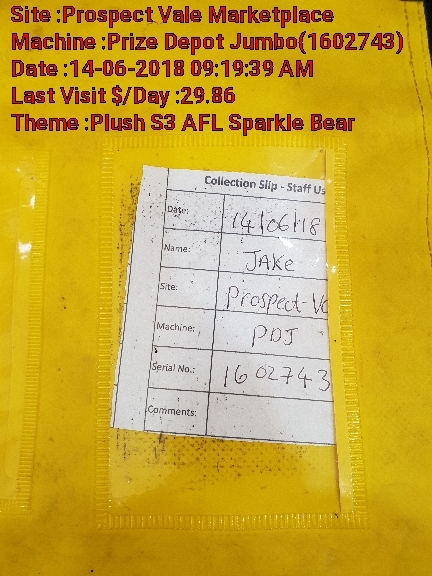 Site :Prospect Vale Marketplace
Machine :Prize Depot Jumbo(1602743)
Date :14-06-2018 09:19:39 AM
Last Visit $/Day :29.86
Theme :Plush S3 AFL Sparkle Bear
Collection Slip - Staff Us
Date: 14/06/18
Name: JAKe
Site: Prospect-Va
Machine: PDJ
Serial No.: 1602743
Comments: